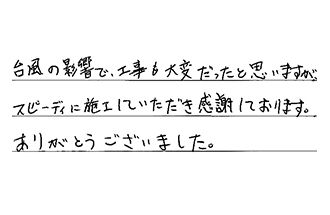 台風の影響で、工事も大変だったと思いますが
スピーディに施工していただき感謝しております。
ありがとうございました。